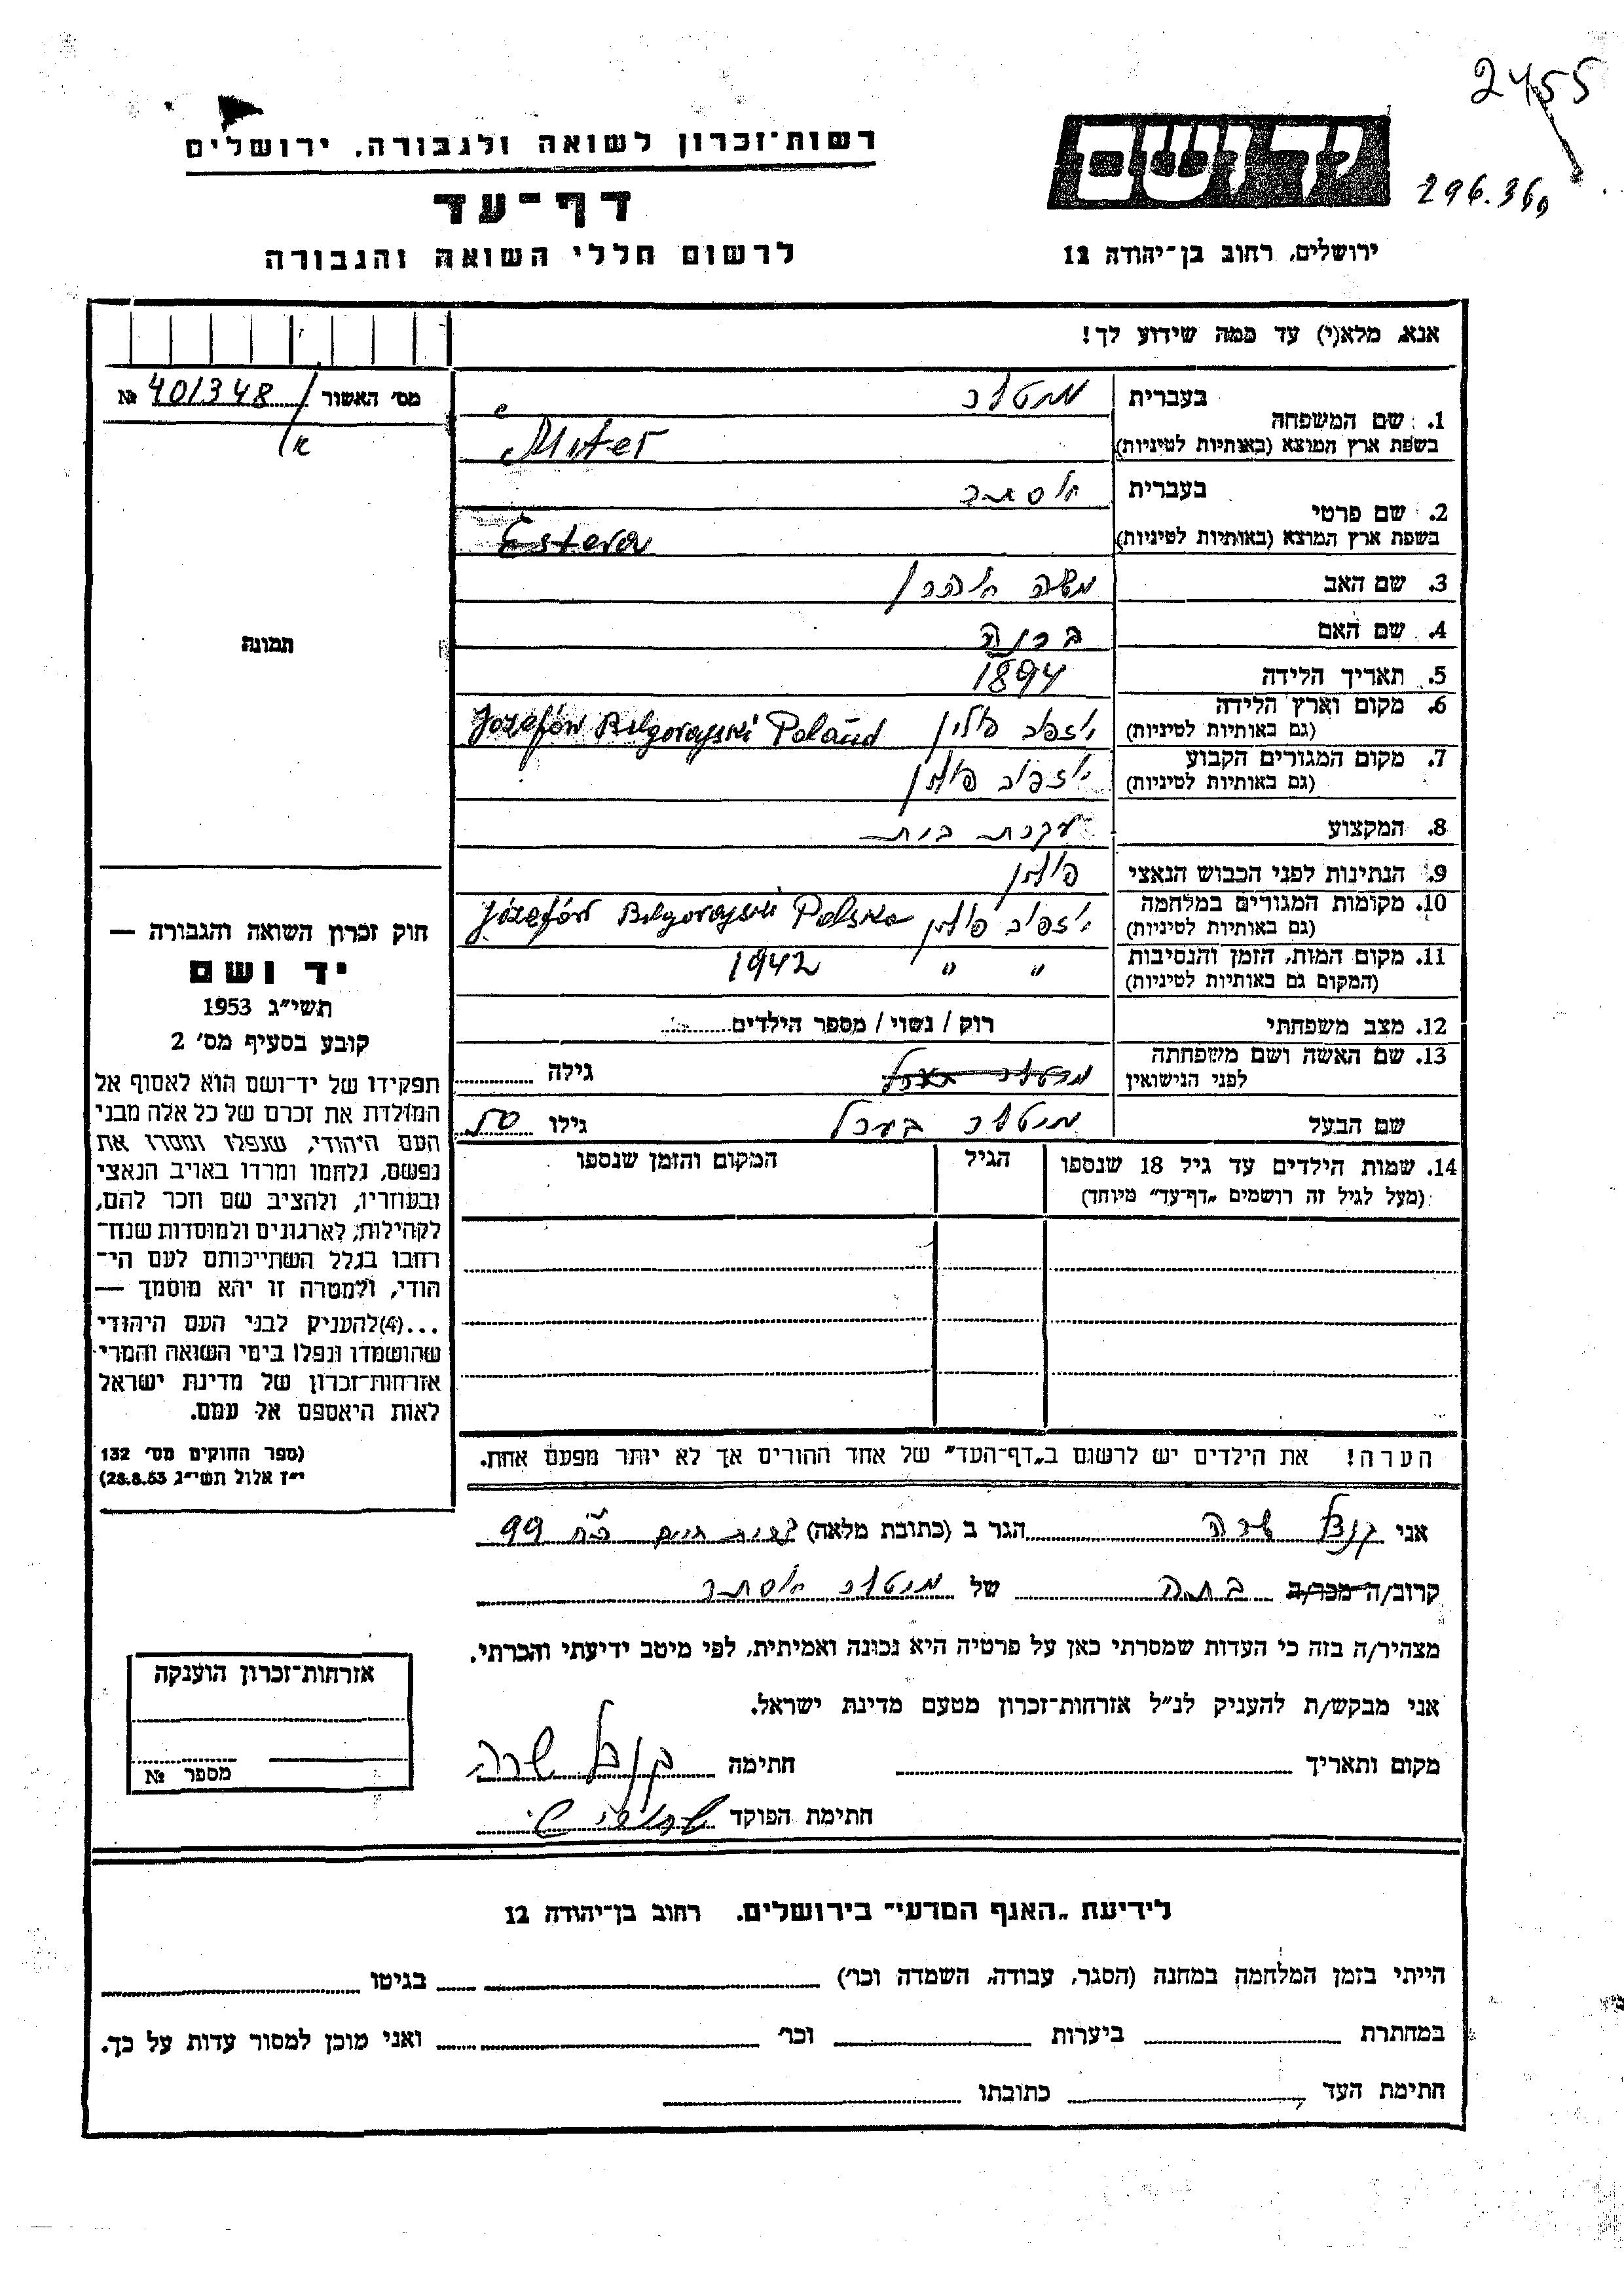 2455
296.36
רשות־זכרון לשואה ולגבורה, ירושלים
יד ושם
דף־עד
לרשום חללי השואה והגבורה
ירושלים, רחוב בן־יהודה 12
אנא, מלא(י) עד כמה שידוע לך!
מס׳ האשור № 401348
1. שם המשפחה
בעברית
בשפת ארץ המוצא (באותיות לטיניות) Muter
2. שם פרטי
בעברית אסתר
בשפת ארץ המוצא (באותיות לטיניות) Estera
3. שם האב משה אהרן
4. שם האם ברנה
5. תאריך הלידה 1894
6. מקום וארץ הלידה
(גם באותיות לטיניות) יוזפוב פולין Józefów Bilgorajski Poland
7. מקום המגורים הקבוע
(גם באותיות לטיניות) יוזפוב פולין
8. המקצוע עקרת בית
9. הנתינות לפני הכבוש הנאצי פולין
10. מקומות המגורים במלחמה
(גם באותיות לטיניות) יוזפוב פולין Józefów Bilgorajski Polska
11. מקום המות, הזמן והנסיבות
(המקום גם באותיות לטיניות) " " 1942
12. מצב משפחתי רוק / נשוי / מספר הילדים
13. שם האשה ושם משפחתה
לפני הנישואין גילה
שם הבעל גילו 50
14. שמות הילדים עד גיל 18 שנספו
(מעל לגיל זה רושמים „דף־עד” מיוחד)
הגיל
המקום והזמן שנספו
הערה! את הילדים יש לרשום ב„דף־העד” של אחד ההורים אך לא יותר מפעם אחת.
תמונה
חוק זכרון השואה והגבורה —
יד ושם
תשי״ג 1953
קובע בסעיף מס׳ 2
תפקידו של יד־ושם הוא לאסוף אל
המולדת את זכרם של כל אלה מבני
העם היהודי, שנפלו ומסרו את
נפשם, נלחמו ומרדו באויב הנאצי
ובעוזריו, ולהציב שם וזכר להם,
לקהילות, לארגונים ולמוסדות שנח־
רחבו בגלל השתייכותם לעם הי־
הודי, ולמטרה זו יהא מוסמך —
...(4)להעניק לבני העם היהודי
שהושמדו ונפלו בימי השואה והמרי
אזרחות־זכרון של מדינת ישראל
לאות היאספם אל עמם.
(ספר החוקים מס׳ 132
י״ז אלול תשי״ג 28.8.53)
אני שרה הגר ב (כתובת מלאה) 99
קרוב/ה מכר/ה בתה של אסתר
מצהיר/ה בזה כי העדות שמסרתי כאן על פרטיה היא נכונה ואמיתית, לפי מיטב ידיעתי והכרתי.
אני מבקש/ת להעניק לנ״ל אזרחות־זכרון מטעם מדינת ישראל.
מקום ותאריך חתימה שרה
חתימת הפוקד
אזרחות־זכרון הוענקה
מספר №
לידיעת „האגף המדעי” בירושלים. רחוב בן־יהודה 12
הייתי בזמן המלחמה במחנה (הסגר, עבודה, השמדה וכו׳) בגיטו
במחתרת ביערות וכו׳ ואני מוכן למסור עדות על כך.
חתימת העד כתובתו